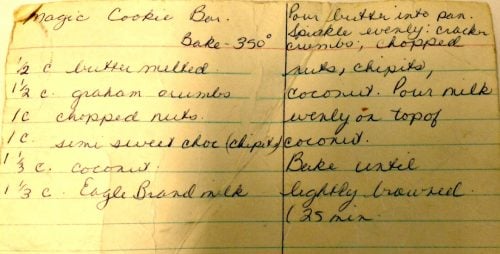 Magic Cookie Bar.
Bake - 350°
1/2 c butter melted
1 1/2 c. graham crumbs
1 c chopped nuts.
1 c. semi sweet choc (chipits)
1 1/3 c. coconut
1 1/3 c. Eagle Brand milk
Pour butter into pan.
Sprinkle evenly: cracker
crumbs, chopped
nuts, chipits,
coconut. Pour milk
evenly on top of
coconut.
Bake until
lightly browned.
(25 min.